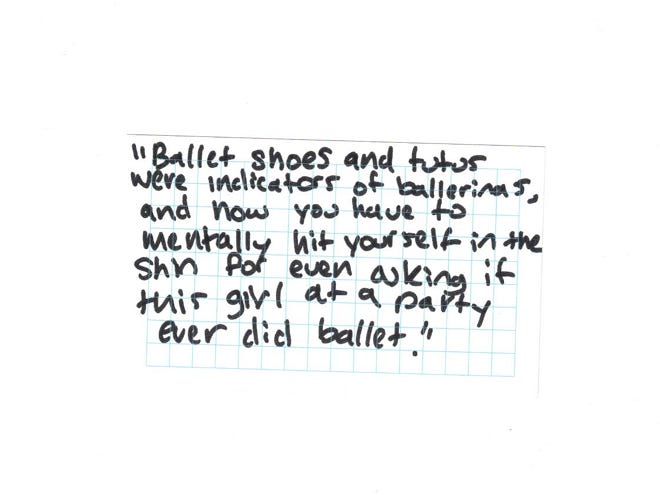 "Ballet shoes and tutus
were indicators of ballerinas,
and now you have to
mentally hit yourself in the
shin for even asking if
this girl at a party
ever did ballet."